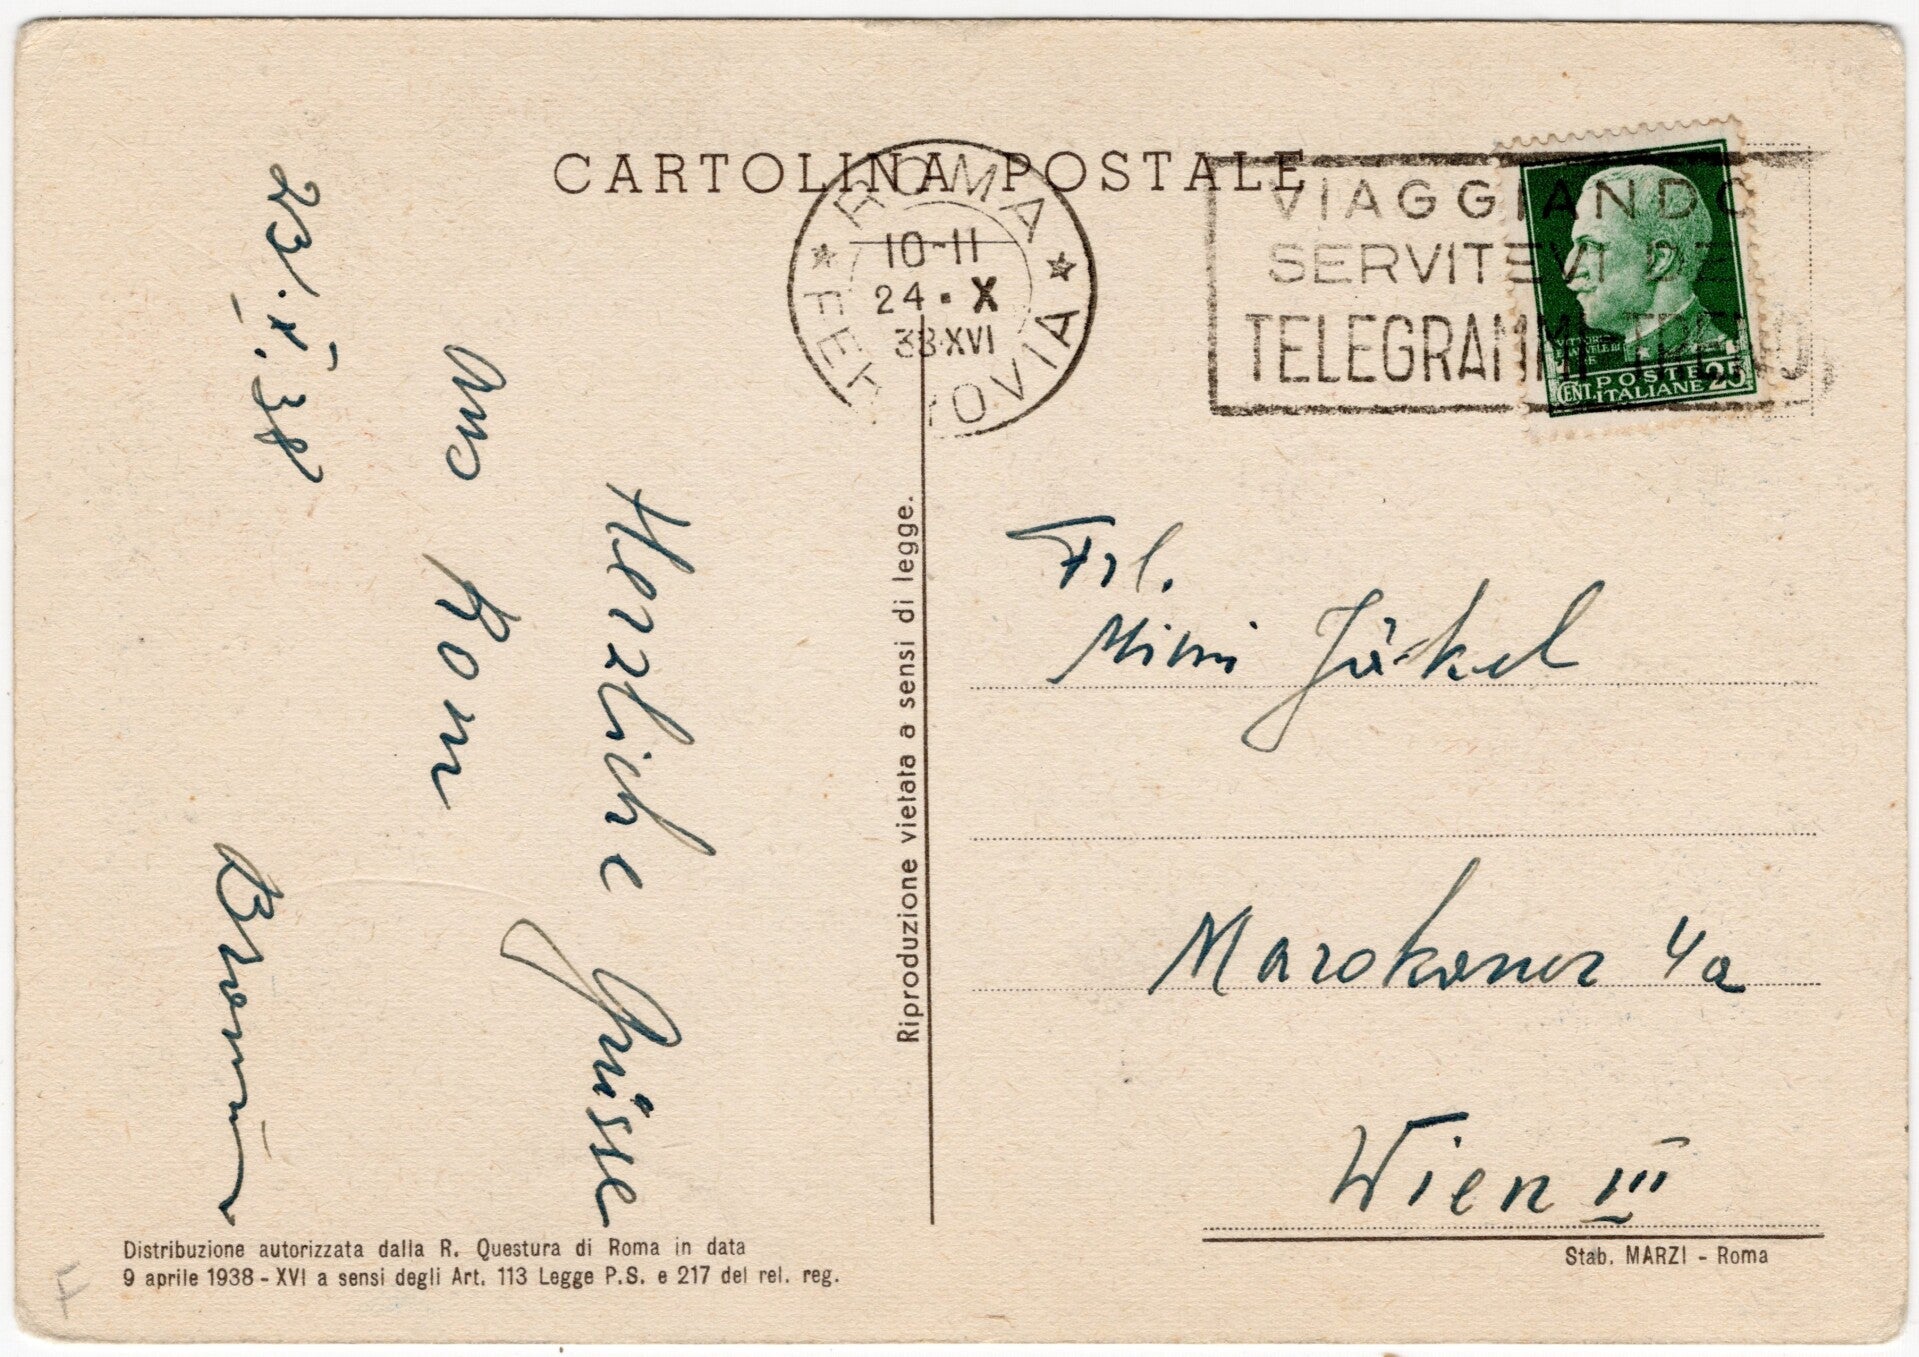 CARTOLINA POSTALE
ROMA
FERROVIA
10-11
24 · X
38·XVI
VIAGGIANDO
SERVITEVI DEI
TELEGRAMMI TRENO
POSTE
ITALIANE
CENT. 25
23.X.38
Herzliche Grüsse
aus Rom
Riproduzione vietata a sensi di legge.
Frl.
Mimi Jäkel
Marokaner 4a
Wien III
Distribuzione autorizzata dalla R. Questura di Roma in data
9 aprile 1938 - XVI a sensi degli Art. 113 Legge P.S. e 217 del rel. reg.
Stab. MARZI - Roma
F